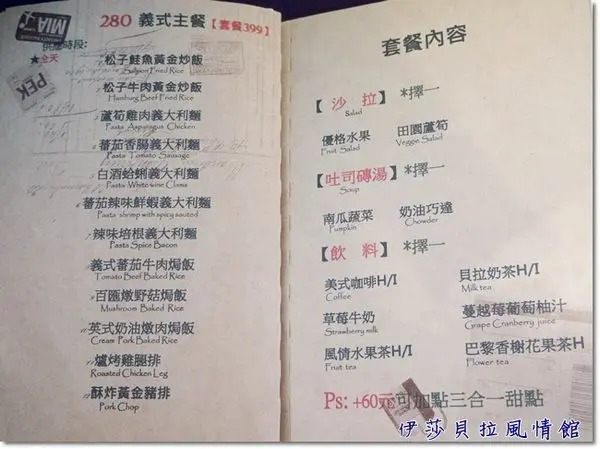 MIA
280 義式主餐【套餐399】
供應時段:
★全天
PEK
松子鮭魚黃金炒飯
Salmon Fried Rice
松子牛肉黃金炒飯
Hamburg Beef Fried Rice
蘆筍雞肉義大利麵
Pasta Asparagus Chicken
蕃茄香腸義大利麵
Pasta Tomato Sausage
白酒蛤蜊義大利麵
Pasta White wine Clams
蕃茄辣味鮮蝦義大利麵
Pasta shrimp with spicy sauted
辣味培根義大利麵
Pasta Spice Bacon
義式蕃茄牛肉焗飯
Tomato Beef Baked Rice
百匯燉野菇焗飯
Mushroom Baked Rice
英式奶油燉肉焗飯
Cream Pork Baked Rice
爐烤雞腿排
Roasted Chicken Leg
酥炸黃金豬排
Pork Chop
套餐內容
【沙拉】*擇一
Salad
優格水果 田園蘆筍
Fruit Salad Veggie Salad
【吐司磚湯】*擇一
Soup
南瓜蔬菜 奶油巧達
Pumpkin Chowder
【飲料】*擇一
美式咖啡H/I 貝拉奶茶H/I
Coffee Milk tea
草莓牛奶 蔓越莓葡萄柚汁
Strawberry milk Grape Cranberry juice
風情水果茶H/I 巴黎香榭花果茶H
Fruit tea Flower tea
Ps: +60元可加點三合一甜點
伊莎貝拉風情館